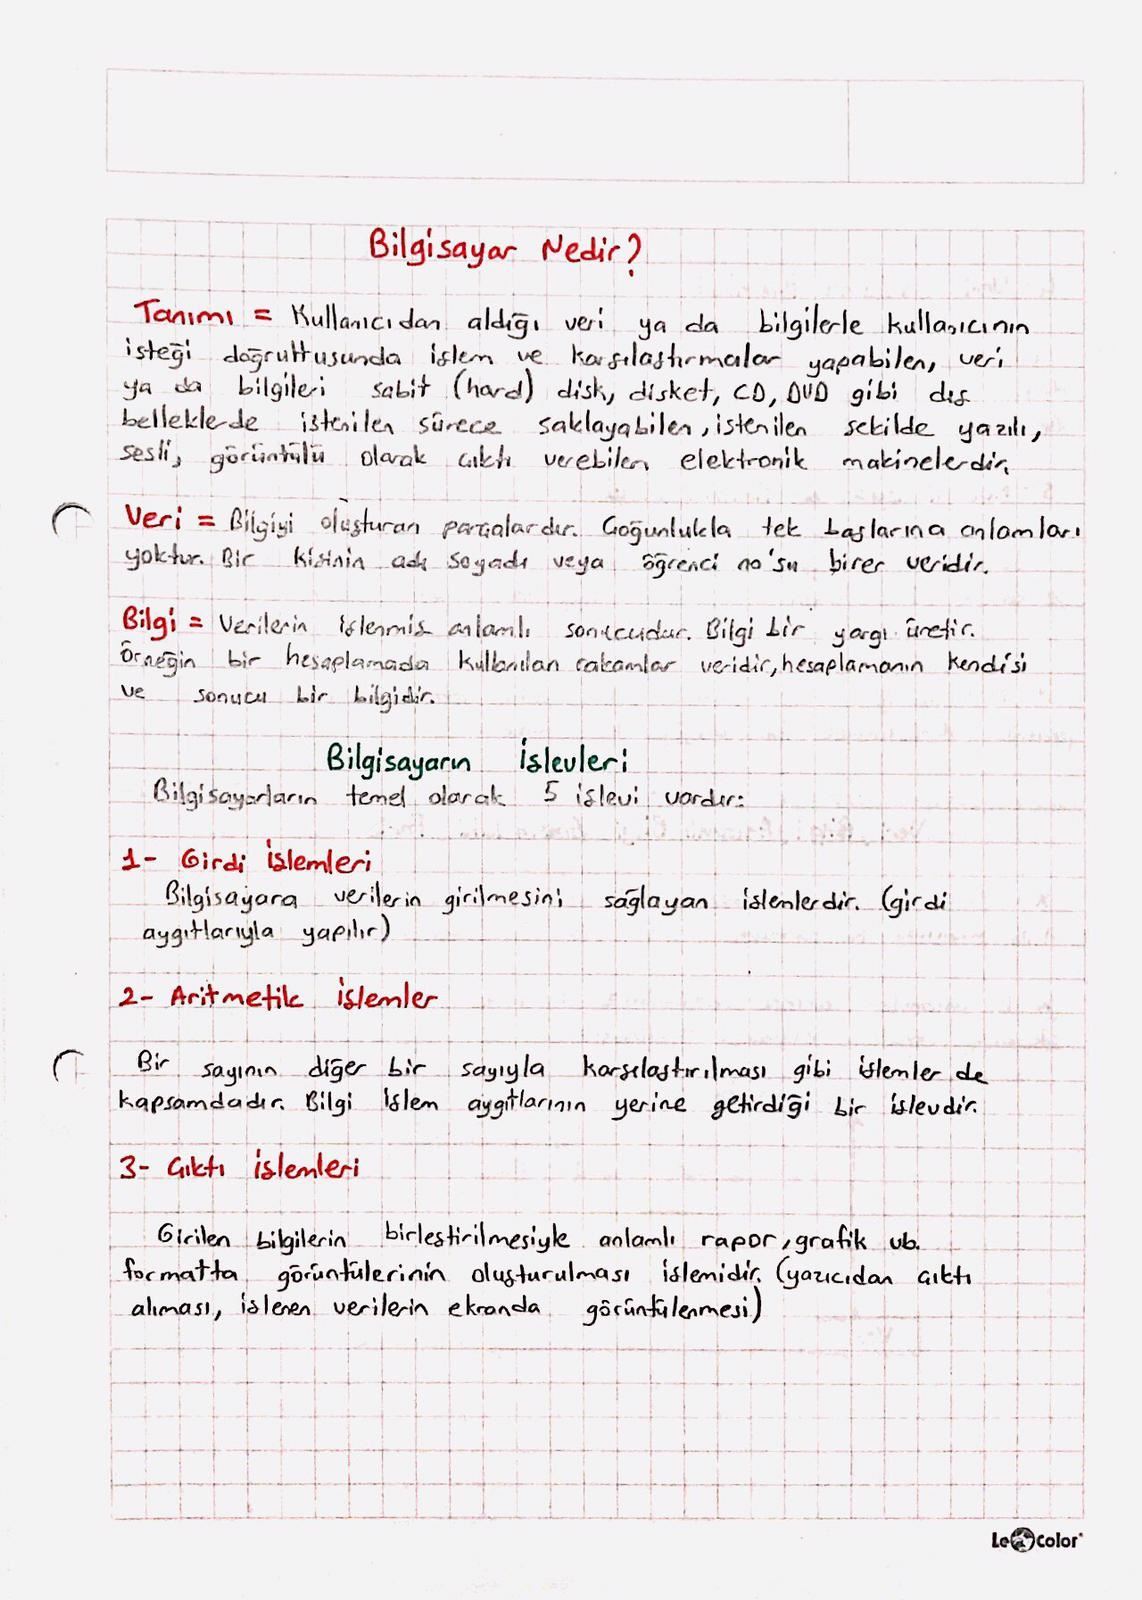 Bilgisayar Nedir?
Tanımı = Kullanıcıdan aldığı veri ya da bilgilerle kullanıcının
isteği doğrultusunda işlem ve karşılaştırmalar yapabilen, veri
ya da bilgileri sabit (hard) disk, disket, CD, DVD gibi dış
belleklerde istenilen sürece saklayabilen, istenilen şekilde yazılı,
sesli, görüntülü olarak çıktı verebilen elektronik makinelerdir.
Veri = Bilgiyi oluşturan parçalardır. Çoğunlukla tek başlarına anlamları
yoktur. Bir kişinin adı soyadı veya öğrenci no'su birer veridir.
Bilgi = Verilerin işlenmiş anlamlı sonucudur. Bilgi bir yargı üretir.
Örneğin bir hesaplamada kullanılan rakamlar veridir, hesaplamanın kendisi
ve sonucu bir bilgidir.
Bilgisayarın İşlevleri
Bilgisayarların temel olarak 5 işlevi vardır:
1- Girdi İşlemleri
Bilgisayara verilerin girilmesini sağlayan işlemlerdir. (girdi
aygıtlarıyla yapılır)
2- Aritmetik İşlemler
Bir sayının diğer bir sayıyla karşılaştırılması gibi işlemler de
kapsamdadır. Bilgi işlem aygıtlarının yerine getirdiği bir işlevdir.
3- Çıktı İşlemleri
Girilen bilgilerin birleştirilmesiyle anlamlı rapor, grafik vb.
formatta görüntülerinin oluşturulması işlemidir. (yazıcıdan çıktı
alıması, işlenen verilerin ekranda görüntülenmesi)
Le color